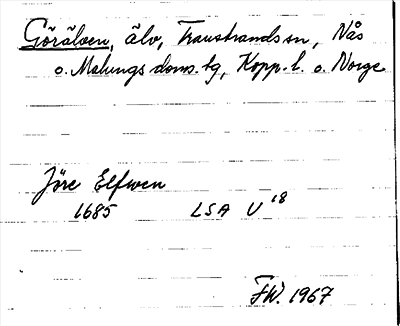 Görälven, älv, Transtrands sn, Nås
o. Malungs doms.tg, Kopp. l. o. Norge
Jöre Elfwen
1685 LSA U 18
FW. 1967